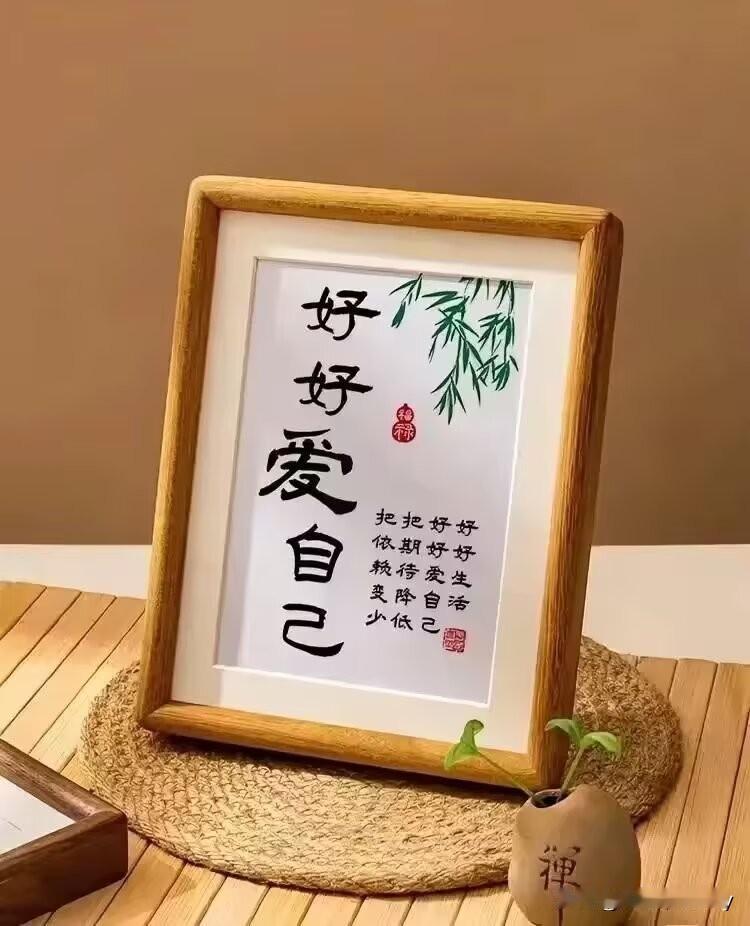 好好爱自己
福禄
好好生活
好好爱自己
把期待降低
把依赖变少
禅